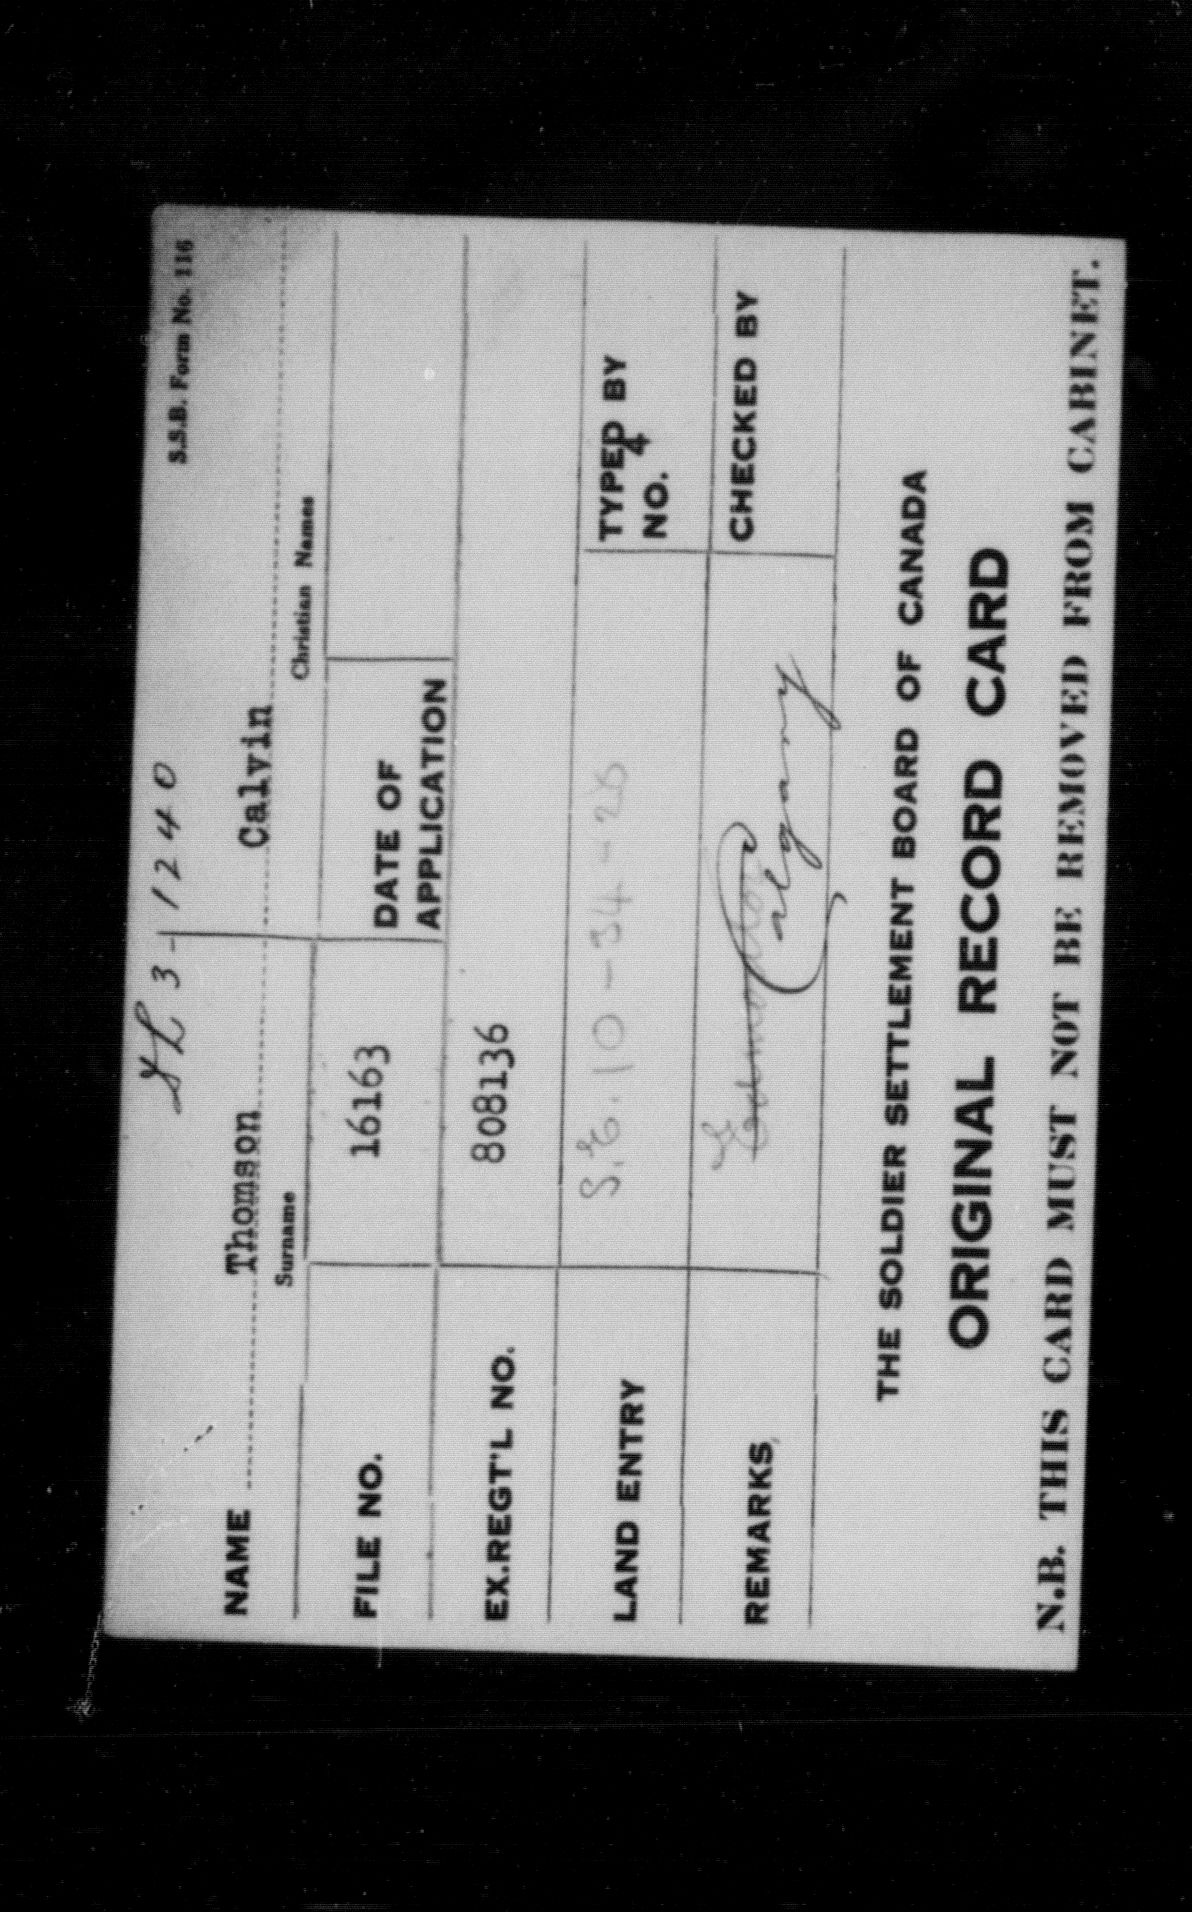 S.S.B. Form No. 116
SL 3-1240
NAME Thomson Calvin
Surname Christian Names
FILE NO. 16163 DATE OF APPLICATION
EX.REGT'L NO. 808136
LAND ENTRY S.E. 10-34-28 TYPED BY NO. 4
REMARKS Edmonton Calgary CHECKED BY
THE SOLDIER SETTLEMENT BOARD OF CANADA
ORIGINAL RECORD CARD
N.B. THIS CARD MUST NOT BE REMOVED FROM CABINET.